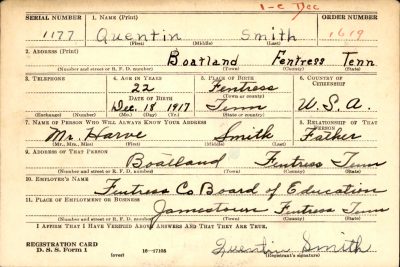 1-c Dec
SERIAL NUMBER 1. NAME (Print) ORDER NUMBER
1177 Quentin Smith 1619
(First) (Middle) (Last)
2. ADDRESS (Print)
Boatland Fentress Tenn
(Number and street or R. F. D. number) (Town) (County) (State)
3. TELEPHONE 4. AGE IN YEARS 5. PLACE OF BIRTH 6. COUNTRY OF CITIZENSHIP
22 Fentress
DATE OF BIRTH (Town or county)
Dec. 18 1917 Tenn U.S.A.
(Exchange) (Number) (Mo.) (Day) (Yr.) (State or country)
7. NAME OF PERSON WHO WILL ALWAYS KNOW YOUR ADDRESS 8. RELATIONSHIP OF THAT PERSON
Mr. Harve Smith Father
(Mr., Mrs., Miss) (First) (Middle) (Last)
9. ADDRESS OF THAT PERSON
Boatland Fentress Tenn
(Number and street or R. F. D. number) (Town) (County) (State)
10. EMPLOYER'S NAME
Fentress Co Board of Education
11. PLACE OF EMPLOYMENT OR BUSINESS
Jamestown Fentress Tenn
(Number and street or R. F. D. number) (Town) (County) (State)
I AFFIRM THAT I HAVE VERIFIED ABOVE ANSWERS AND THAT THEY ARE TRUE.
REGISTRATION CARD
D. S. S. Form 1 (over) 16-17105 Quentin Smith
(Registrant's signature)